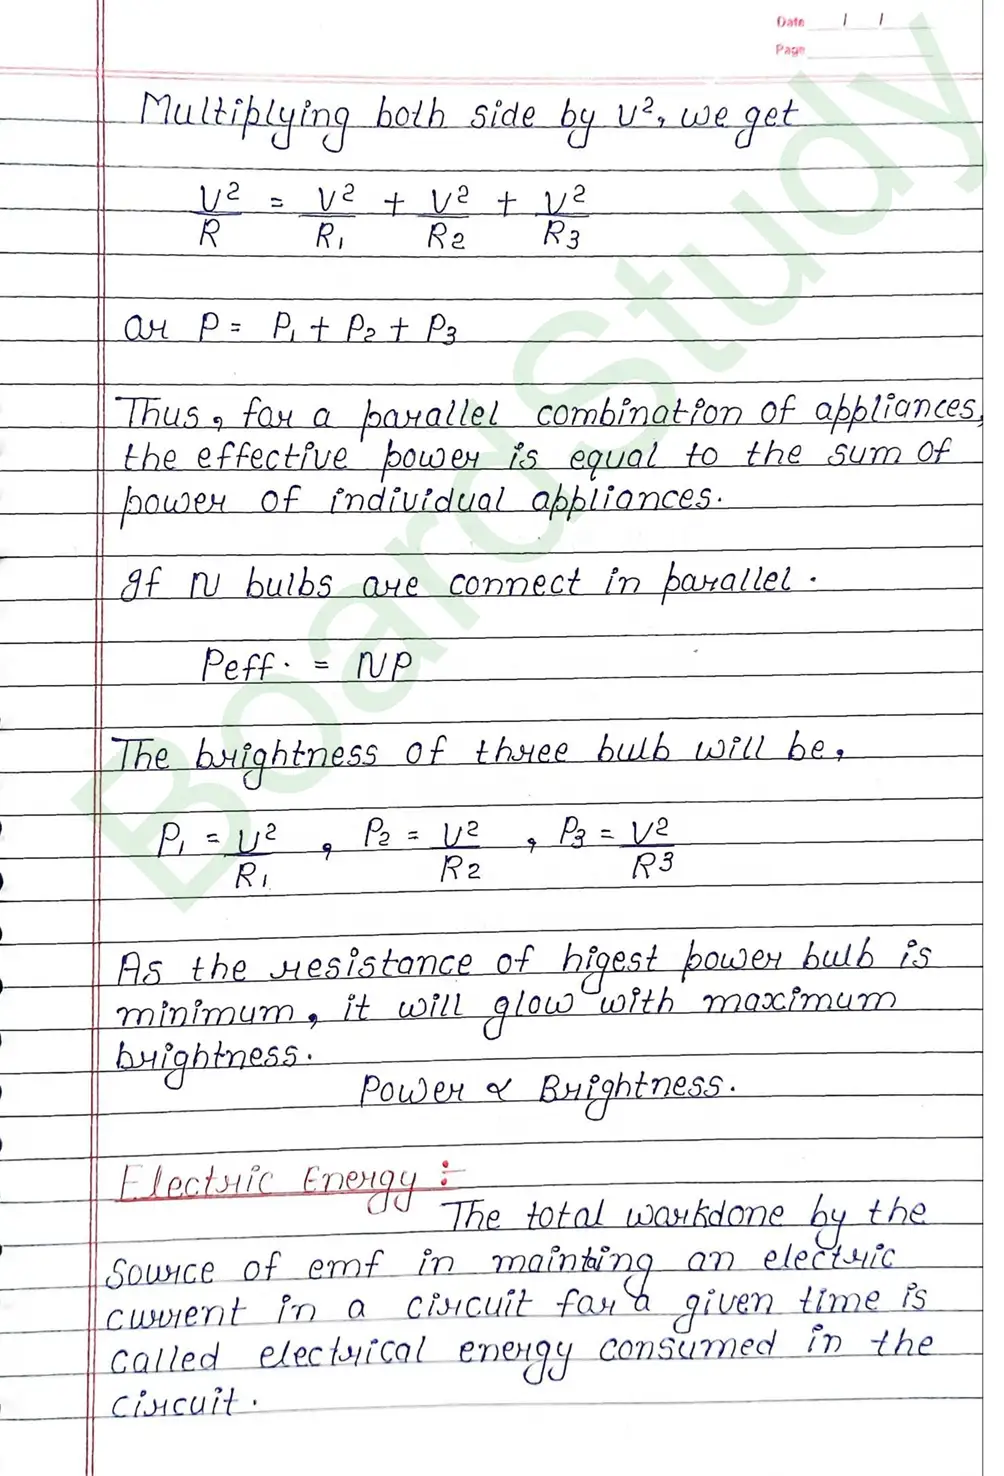 Date / /
Page
Multiplying both side by V², we get
V²/R = V²/R₁ + V²/R₂ + V²/R₃
or P = P₁ + P₂ + P₃
Thus, for a parallel combination of appliances,
the effective power is equal to the sum of
power of individual appliances.
If N bulbs are connect in parallel.
Peff. = NP
The brightness of three bulb will be,
P₁ = V²/R₁ , P₂ = V²/R₂ , P₃ = V²/R₃
As the resistance of higest power bulb is
minimum, it will glow with maximum
brightness.
Power ∝ Brightness.
Electric Energy :-
The total workdone by the
source of emf in maintaing an electric
current in a circuit for a given time is
called electrical energy consumed in the
circuit.
BoardStudy